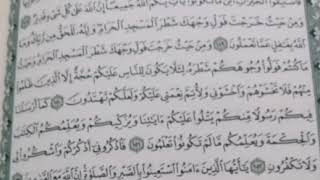 فَاسْتَبِقُوا الْخَيْرَاتِ أَيْنَ مَا تَكُونُوا يَأْتِ بِكُمُ اللَّهُ جَمِيعًا إِنَّ اللَّهَ عَلَىٰ كُلِّ شَيْءٍ قَدِيرٌ
وَمِنْ حَيْثُ خَرَجْتَ فَوَلِّ وَجْهَكَ شَطْرَ الْمَسْجِدِ الْحَرَامِ وَإِنَّهُ لَلْحَقُّ مِن رَّبِّكَ وَمَا
اللَّهُ بِغَافِلٍ عَمَّا تَعْمَلُونَ ١٤٩ وَمِنْ حَيْثُ خَرَجْتَ فَوَلِّ وَجْهَكَ شَطْرَ الْمَسْجِدِ الْحَرَامِ وَحَيْثُ
مَا كُنتُمْ فَوَلُّوا وُجُوهَكُمْ شَطْرَهُ لِئَلَّا يَكُونَ لِلنَّاسِ عَلَيْكُمْ حُجَّةٌ إِلَّا الَّذِينَ ظَلَمُوا
مِنْهُمْ فَلَا تَخْشَوْهُمْ وَاخْشَوْنِي وَلِأُتِمَّ نِعْمَتِي عَلَيْكُمْ وَلَعَلَّكُمْ تَهْتَدُونَ ١٥٠ كَمَا أَرْسَلْنَا
فِيكُمْ رَسُولًا مِّنكُمْ يَتْلُوا عَلَيْكُمْ آيَاتِنَا وَيُزَكِّيكُمْ وَيُعَلِّمُكُمُ الْكِتَابَ
وَالْحِكْمَةَ وَيُعَلِّمُكُم مَّا لَمْ تَكُونُوا تَعْلَمُونَ ١٥١ فَاذْكُرُونِي أَذْكُرْكُمْ وَاشْكُرُوا لِي
وَلَا تَكْفُرُونِ ١٥٢ يَا أَيُّهَا الَّذِينَ آمَنُوا اسْتَعِينُوا بِالصَّبْرِ وَالصَّلَاةِ إِنَّ اللَّهَ مَعَ